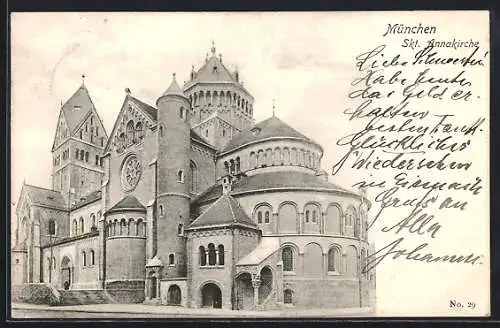 München
Skt. Annakirche
Liebe Schwester
Habe heute
das Geld er-
halten
besten Dank
Glückliches
Wiedersehn
in
Gruß an
Alle
Johannes.
No. 29